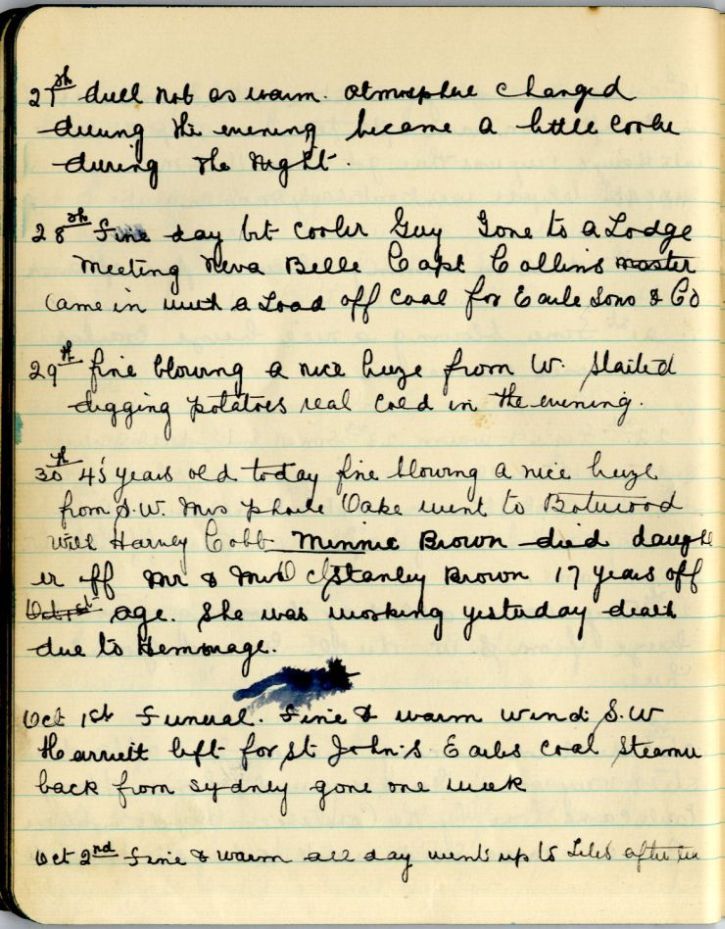 27th dull not as warm. atmosphere changed
during the evening became a little cooler
during the night.
28th fine day but cooler Guy gone to a Lodge
meeting Neva Belle Capt Collins master
came in with a Load off coal for Earle Sons & Co
29th fine blowing a nice breeze from W. Started
digging potatoes real cold in the evening.
30th 45 years old today fine blowing a nice breeze
from S.W. Mrs Oake went to Botwood
with Harvey Cobb Minnie Brown died daught
er off Mr & Mrs Stanley Brown 17 years off
Oct 1st age. She was working yesterday death
due to Hemorage.
Oct 1st Funeral. Fine & warm wind S.W
Harriett left for St John's Earles coal Steamer
back from Sydney gone one week
Oct 2nd Fine & warm all day went up to after tea